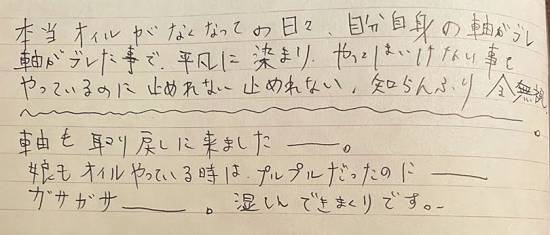 本当 オイルがなくなっての日々、自分自身の軸がブレ
軸がブレた事で、平凡に染まり、やってはいけない事を
やっているのに止めれない止めれない、知らんふり 全無視。
軸を取り戻しに来ました――。
娘もオイルやっている時は、プルプルだったのに――
ガサガサ――。湿しんできまくりです。